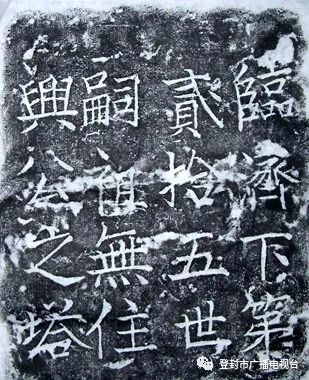 臨濟下第
貳拾五世
嗣祖無住
興公之塔
登封市广播电视台